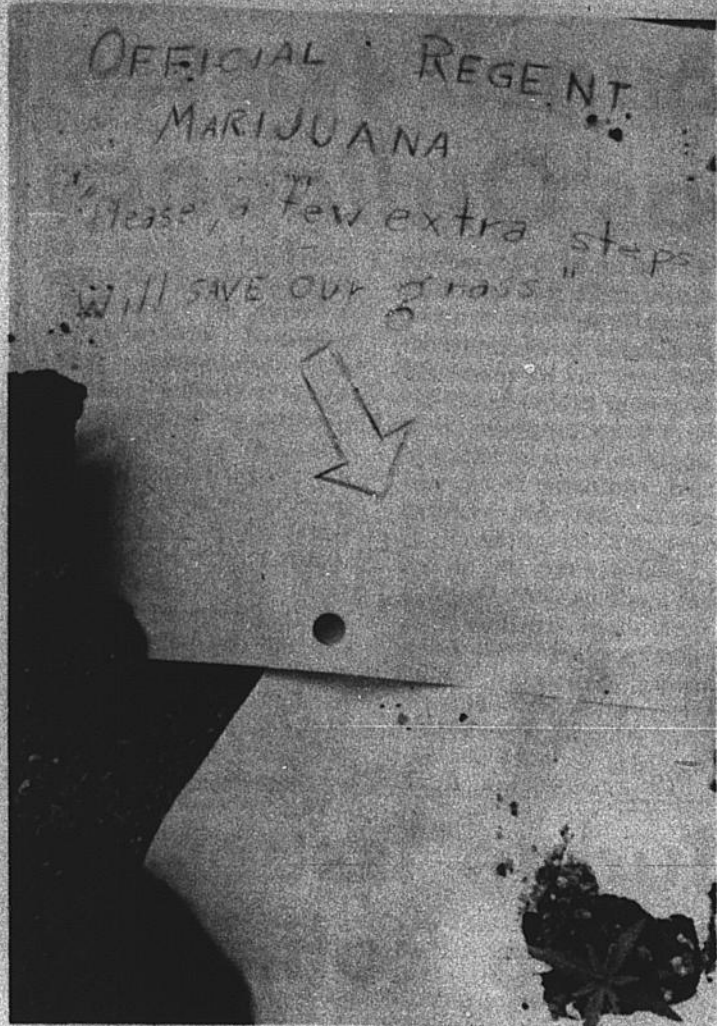 OFFICIAL REGENT
MARIJUANA
"Please, a few extra steps
Will SAVE OUr grass"